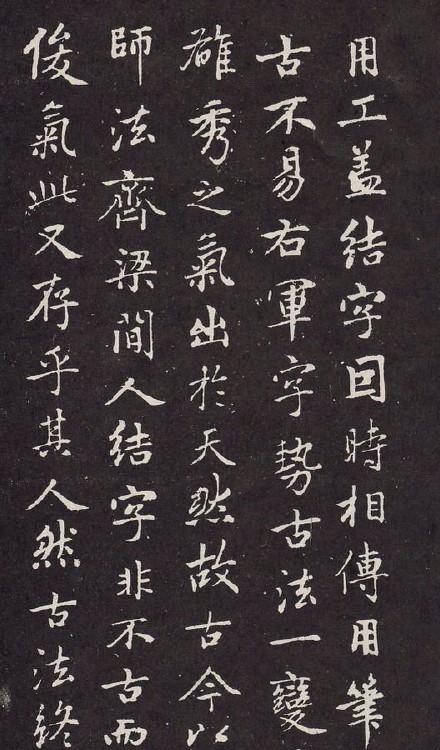 用工盖結字因時相傳用筆
古不易右軍字勢古法一變
雄秀之氣出於天然故古今以
師法齊梁間人結字非不古而
俊氣此又存乎其人然古法終